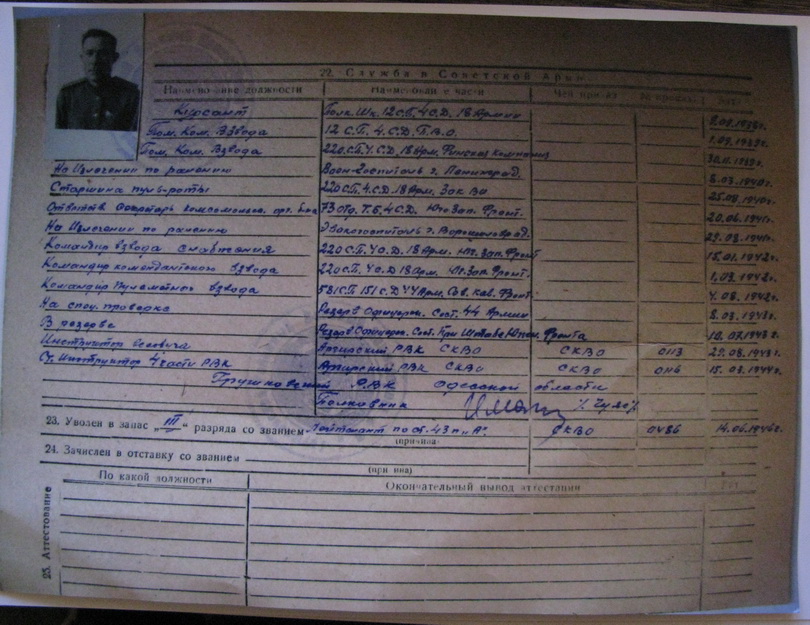 22. Служба в Советской Армии
Наименование должности Наименование части Чей приказ № приказа Дата
Курсант Полк. Шк. 12 С.П. 4 С.Д. 18 Армии
Пом. Ком. Взвода 12 С.П. 4. С.Д. П.В.О. 1.09.1939г.
Пом. Ком. Взвода 220 С.П. 4. С.Д. 18 Арм. Финская компания 30.11.1939г.
На Излечении по ранению Воен-Госпиталь г. Ленинград. 8.03.1940г.
Старшина пульроты 220 С.П. 4. С.Д. 18 Арм. Зак Во 25.08.1940г.
Ответств Секретарь комсомольск. орг. 73 отд. Т.Б. 4 С.Д. Юго Зап. Фронт. 20.06.1941г.
На Излечении по ранению Эвакогоспиталь г. Ворошиловград. 29.08.1941г.
Командир взвода снабжения 220 С.П. 4 С.Д. 18 Арм. Юг. Зап. Фронт 15.01.1942г.
Командир комендантского взвода 220 С.П. 4 С.Д. 18 Арм. Юг. Зап. Фронт. 1.03.1942г.
Командир Пулеметного взвода 581 С.П. 151 С.Д. 44 Арм. Сев. Кав. Фронт. 4.08.1942г.
На спец. проверке Резерв Офицерск. Сост. 44 Армии 8.03.1943г.
В резерве Резерв Офицерск. Сост. При Штабе Южн. Фронта 10.07.1943г.
Инструктор Всевобуча РВК СКВО СКВО 0113 29.08.1943г.
Ст. Инструктор 4 части РВК РВК СКВО СКВО 0116 15.03.1944г.
РВК Одесской области
Полковник
23. Уволен в запас „III“ разряда со званием Лейтенант по ст. 43 п „А“. СКВО 0486 14.06.1946г.
24. Зачислен в отставку со званием
25. Аттестование
По какой должности Окончательный вывод аттестации